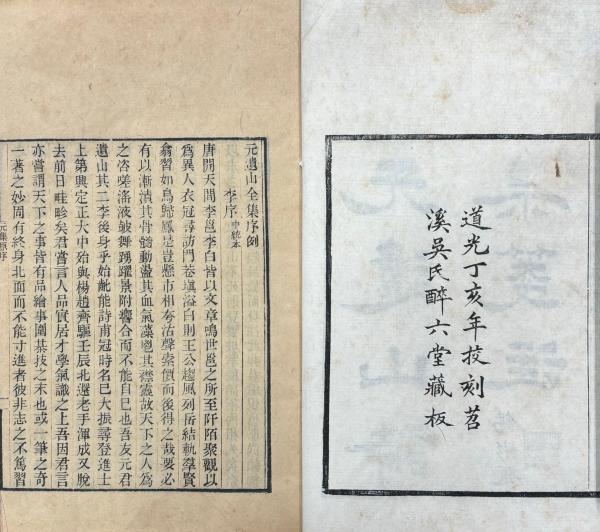 道光丁亥年挍刻苕
溪吳氏醉六堂藏板
元遺山全集序例
李序 中統本
唐開天間李邕李白皆以文章鳴世邕之所至阡陌聚觀以
爲異人衣冠尋訪門巷塡溢白則王公趨風列岳結軌羣賢
翕習如鳥歸鳳是豈懸市相夸沽聲索價而後得之哉要必
有以漸漬其骨髓動盪其血氣藻其襟靈故天下之人爲
之咨嗟滛液皷舞踴躍景附響合而不能自已也吾友元君
遺山其二李後身乎始齔能詩甫冠時名已大振尋登進士
上第興定正大中殆與楊趙齊驅壬辰北還老手渾成又脫
去前日畦畛矣君嘗言人品實居才學氣識之上吾因君言
亦嘗謂天下之事皆有品繪事圍棊技之末也或一筆之奇
一著之妙固有終身北面而不能寸進者彼非志之不篤習
元集原序